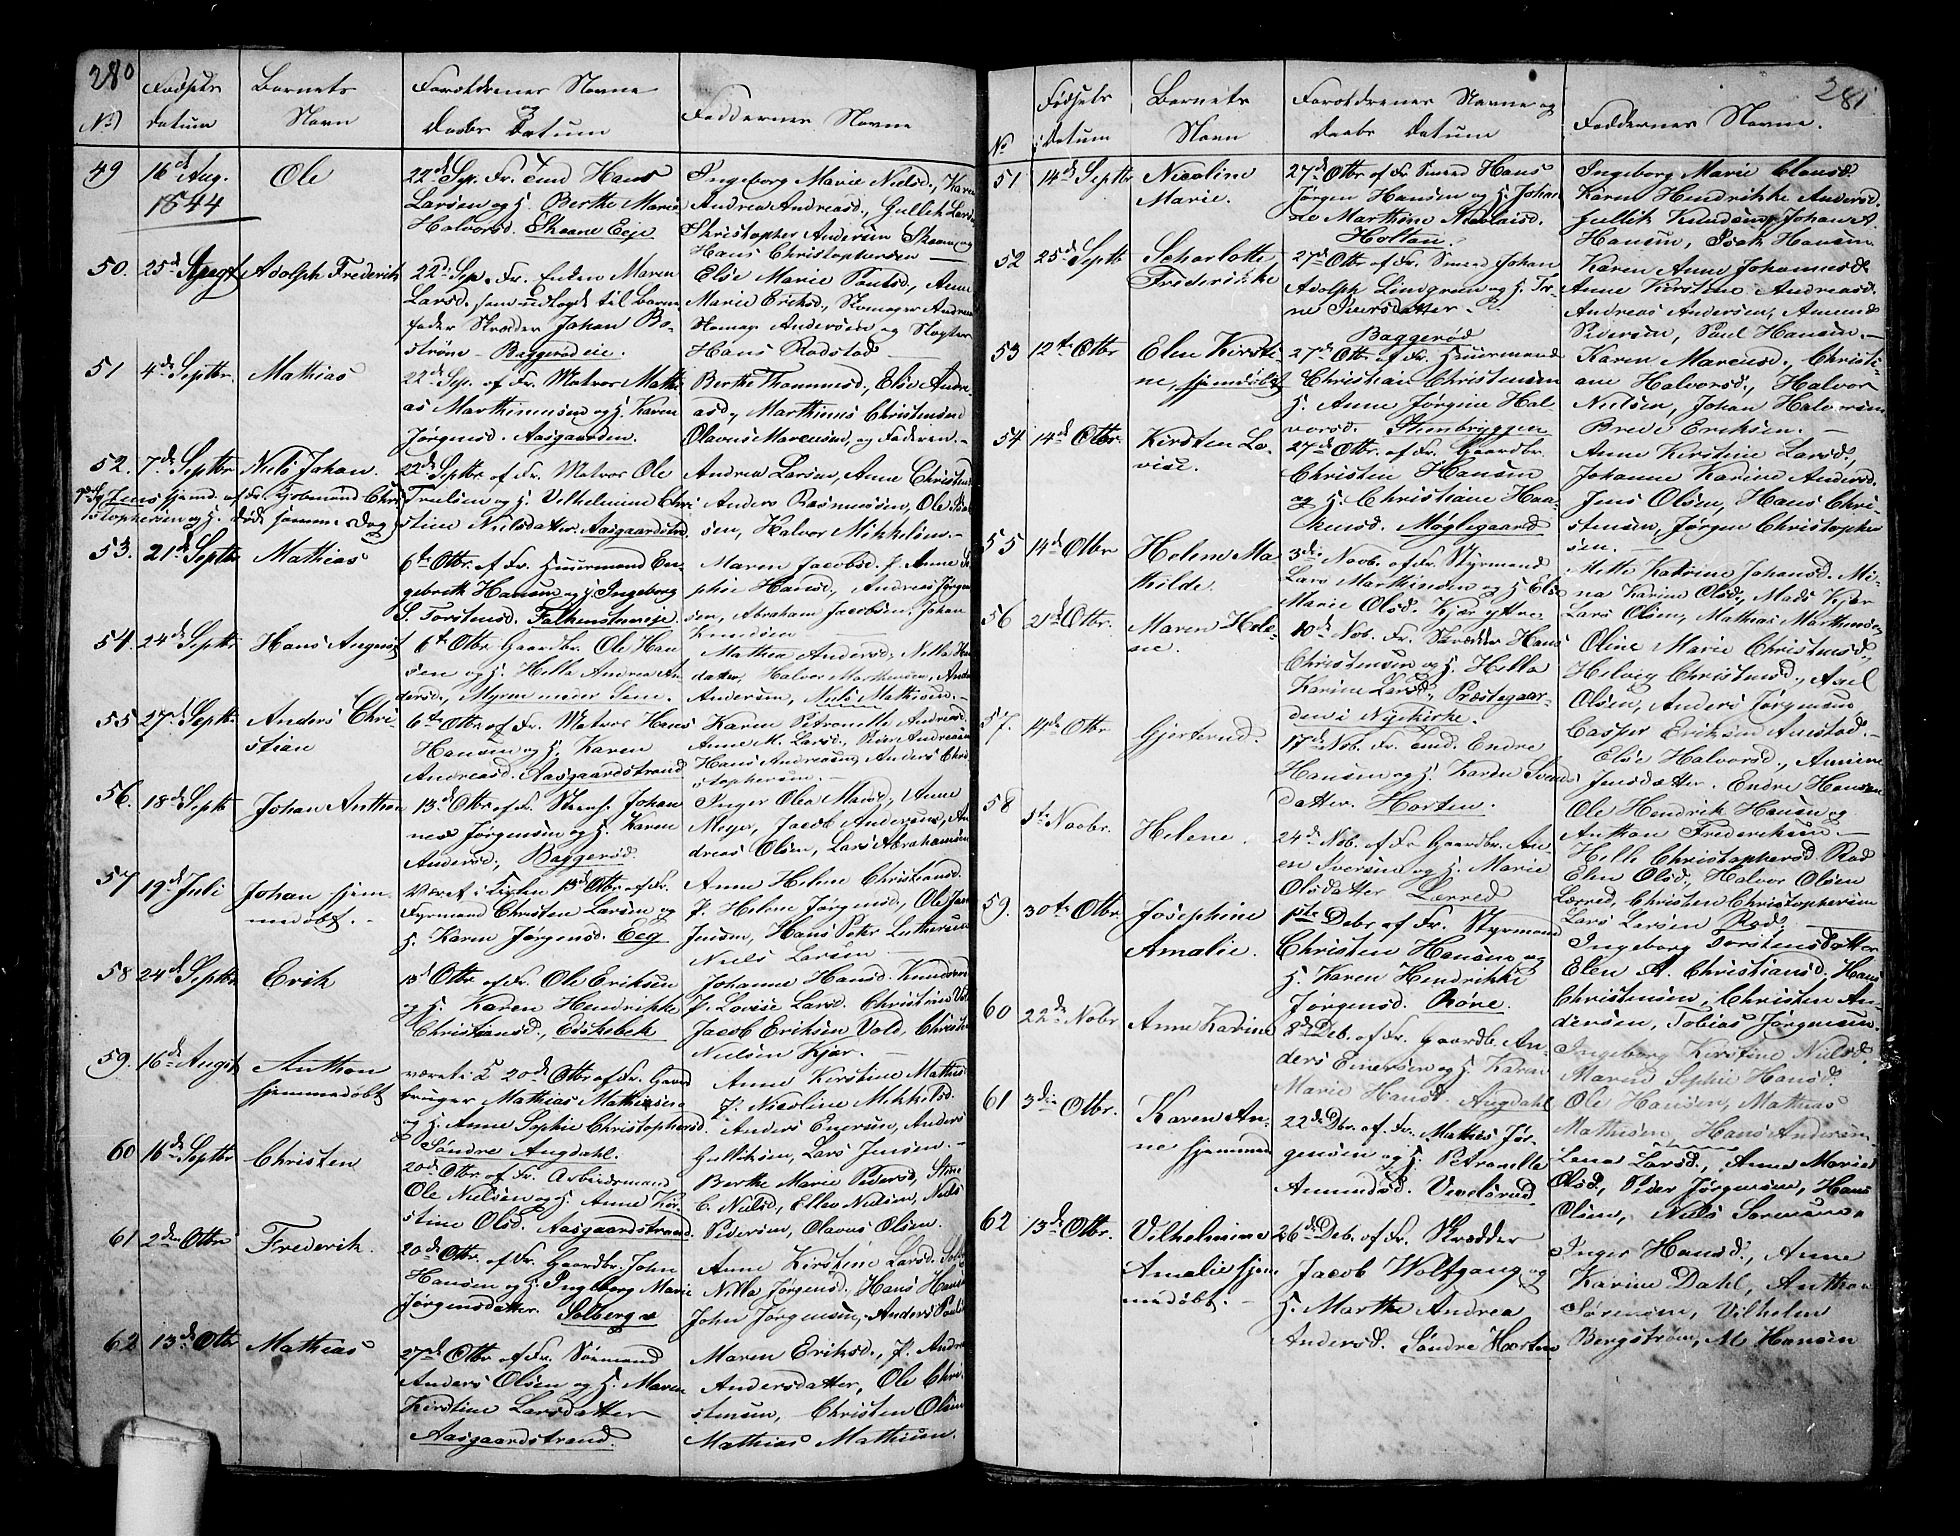 280
No
Fødsels
datum
Barnets
Navn
Forældrenes Navne
og
Daabs Datum
Faddernes Navne
49
16d Aug.
1844
Ole
22d Sep. Fr. Tmd Hans
Larsen og H. Berthe Marie
Halvorsd. Skaane Eeje
Ingeborg Marie Nielsd., Karen
Andrea Andreasd., Gullik Lars
Christopher Andersen Skaane og
Hans Christophersen
50.
25d Augt
Adolph Frederik
22d Sep. Fr. Enken Maren
Larsd., som udlagt til Barne
fader Skræder Johan Bo-
strøm - Baggerød eie.
Else Marie Poulsd., Anne
Marie Eriksd., Skomager Andreas
Andersen og
Hans Rodstad
51
4de Septbr.
Mathias
22d Sep. af Fr. Matros Mathi
as Marthinussen og H. Karen
Jørgensd. Aasgaarden.
Berthe Thommesd., Elise Andre-
asd., Marthinus Christensen
Olavus Marcusen, og Faderen.
52.
7de Septbr
Niels Johan.
22d Septbr af Fr. Matros Ole
Truelsen og H. Vilhelmine Chri
stine Nielsdatter Aasgaardstrand.
Andrea Larsen, Anne Christens
Anders Rasmussen, Ole
sen, Halvor Mikkelsen.
Jens hjemd. af Fr. Chri
stophersen og H. død samme Dag
53.
21de Septbr
Mathias
6te Otbr. af Fr. Huusmand En-
gebreth Hansen og H. Ingeborg
S. Torstensd. Falkensteneje.
Maren Jacobsd. J. Anne So
phie Hansd., Andreas Jørgen
sen, Abraham Jacobsen, Johan
Knudsen
54.
24de Septbr
Hans August
6te Otbr. Gaardbr. Ole Han
sen og H. Hella Andrea An
dersd., Myren under Sem.
Mathea Andersd., Nilla Han
datter, Halvor Marthinsen, Ande
Andersen, Niels Mathisen.
55
27de Septbr.
Anders Chri-
stian
6te Otbr. af Fr. Matros Hans
Hansen og H. Karen
Andreasd. Aasgaardstrand
Karen Petronelle Andreasd.
Anne M. Larsd., Peder Andreasen
Hans Andreasen, Anders Chri
stophersen.
56.
18de Septbr
Johan Anthon
13d. Otbr. af Fr. Johan
nes Jørgensen og H. Karen
Andersd., Baggerød.
Inger Olea Mansd., Anne
Meyer, Jacob Andersen, An
dreas Olsen, Lars Abrahamsen
57
19de Juli
Johan hjem-
medøbt.
Været i Kirken 13d Otbr. af Fr.
Christen Larsen og
H. Karen Jørgensd. Eeg
Anne Helene Christiansd.
J. Helene Jørgensd., Ole Jan
Jensen, Hans Peter
Niels Larsen
58
24de Septbr
Erik
13d Otbr. af Fr. Ole Eriksen
og H. Karen Hendrikke
Christiansd., Eskebek
Johanne Hansd. Knudsen
J. Lovise Larsd. Christine Vold
Jacob Eriksen Vold, Christen
Nielsen Kjær.
59.
16de Augst
Anthon
hjemmedøbt
været i K 20de Otbr af Fr. Gaard
bruger Mathias Mathiesen
og H. Anne Sophie Christophersd
Søndre Augdahl.
Anne Kirstine Mathis
J. Nicoline Mikkelsd.
Anders Enersen, Anders
Gulliksen, Lars Jensen.
60
16de Septbr
Christen
20de Otbr. af Fr. Arbeidsmand
Ole Nielsen og H. Anne Kir-
stine Olsd. Aasgaardstrand
Berthe Marie Pedersd, Stine
C. Nielsd., Ellev Nielsen, Niels
Pedersen, Olavus Olsen.
61
2den Otbr
Frederik.
20de Otbr. af Fr. Gaardbr. John
Hansen og H. Ingeborg Marie
Jørgensdatter. Solberg
Anne Kirstine Larsd.
Nilla Jørgensd. Hans Hansen
John Jørgensen, Anders
62
13de Otbr
Mathias
27de Otbr af Fr. Sømand
Anders Olsen og H. Maren
Kirstine Larsdatter
Aasgaardstrand.
Maren Eriksd., J. Andrea
Andersdatter, Ole Chri-
stensen, Christen Olsen
Mathias Mathisen.
281
No
Fødsels
Datum
Barnets
Navn
Forældrenes Navne og
Daabs Datum
Faddernes Navne.
51
14de Septbr
Nicoline
Marie.
27de Otbr af Fr. Smed Hans
Jørgen Hansen og H. Johan
ne Marthine Nicolaisd.
Holtan.
Ingeborg Marie Clausd.
Karen Hendrikke Andersd.
Gullik Knudsen, Johan A
Hansen, Isak Hansen
52
25de Septbr
Scharlotte
Frederikke
27de Otbr. af Fr. Smed Johan
Adolph Lindgren og H. Tri-
ne Iversdatter
Baggerød
Karen Anne Johannesd.
Anne Kirstine Andreasd.
Andreas Andersen, Amund
Pedersen, Poul Hansen.
53
12te Otbr
Elen Kirsti-
ne, hjemdøbt
27de Otbr. af Fr. Huusmand
Christian Christensen
H. Anne Jørgine Hal-
vorsd. Steenbryggen
Karen Marcusd., Christi-
ane Halvorsd., Halvor
Nielsen, Johan Halvorsen
Brede Eriksen.
54
14de Otbr.
Kirsten Lo-
vise.
27de Otbr. af Fr. Gaardbr.
Christen Hansen
og H. Christiane Haa-
kensd. Møglegaard
Anne Kirstine Larsd.,
Johanne Karine Andersd.
Jens Olsen, Hans Chri-
stensen, Jørgen Christopher
sen.
55
14de Otbr
Helene Ma-
thilde.
3die Novb. af Fr. Styrmand
Lars Marthinsen og H. Else
Marie Olsd. Kjær yttre
Mette Katrine Johansd. Mi-
na Karine Olsd., Mads Kjær
Lars Olsen, Mathias Marthinsen
56
21de Otbr.
Maren Hele-
ne.
10de Nob. Fr. Skrædder Hans
Christensen og H. Hella
Karine Larsd., Præstegaar-
den i Nykirke.
Oline Marie Christensd.,
Helvig Christensd., Axel
Olsen, Anders Jørgensen
Casper Eriksen Anestad.
57.
14de Otbr
Gjertrud.
17de Nob. Fr. Tmd. Endre
Hansen og H. Karen Svends
datter. Horten.
Else Halvorsd., Annine
Jensdatter. Endre Hansen
Ole Hendrik Hansen og
Anthon Frederiksen.
58
5te Novbr.
Helene.
24de Nob. af Fr Gaardbr. An
en Iversen og H. Marie
Olsdatter Lærred
Helle Christophersd Rød
Elen Olsd., Halvor Olsen
Lærred, Christen Christophersen
Lars Larsen Rød.
59.
30te Otbr
Josephine
Amalie.
1ste Debr. af Fr. Styrmand
Christen Hansen og
H. Karen Hendrikke
Jørgensd. Røre.
Ingeborg Torstensdatter
Elen A. Christiansd. Hans
Christensen, Christen An-
dersen, Tobias Jørgensen.
60
22de Nobr
Anne Karine
8de Deb. af Fr. Gaardbr. An-
ders Enersen og H. Karen
Marie Hansd. Augdahl
Ingeborg Kirstine Nielsd.
Maren Sophie Hansd.
Ole Hansen, Mathias
Mathisen, Hans Andersen.
61
3die Otbr.
Karen An-
ne hjemmed
22de Dbr. af Fr. Mathis Jør-
gensen og H. Petronelle
Amundsd. Vevelsrud
Lena Larsd., Anne Marie
Olsd., Peder Jørgensen, Hans
Olsen, Niels Sørensen.
62
13de Otbr.
Vilhelmine
Amalie hjem
medøbt.
26de Deb. af Fr. Skrædder
Jacob Wolfgang og
H. Marthe Andrea
Andersd. Søndre Horten
Inger Hansd., Anne
Karine Dahl, Anthon
Sørensen, Vilhelm
Bergstrøm, M Hansen